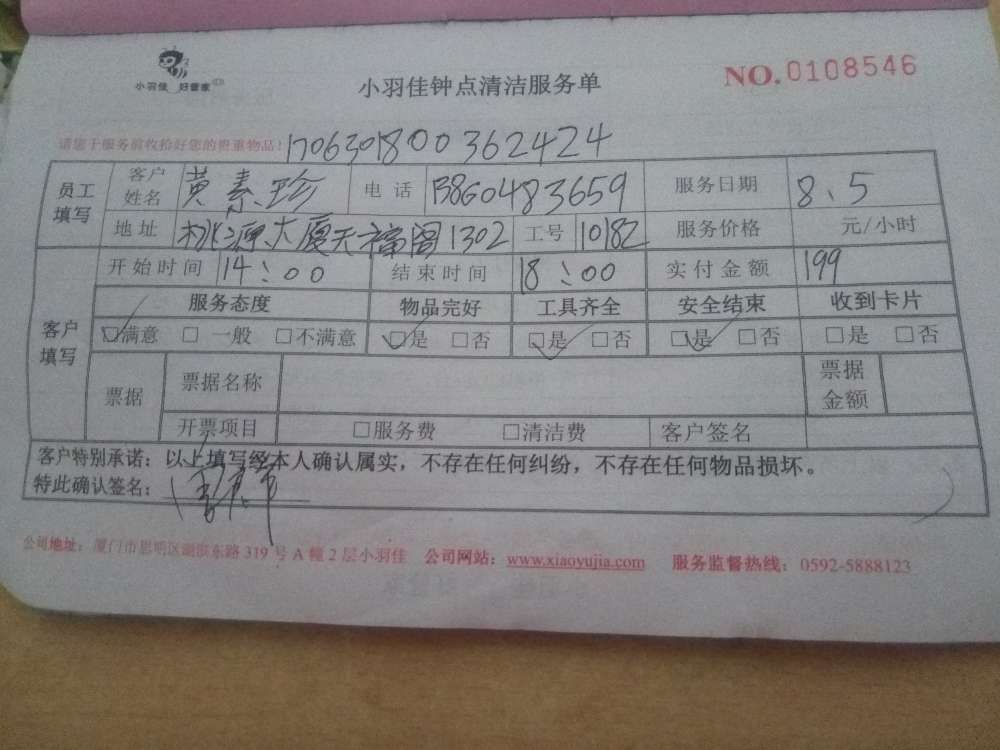 小羽佳 好管家
小羽佳钟点清洁服务单
NO.0108546
请您于服务前收拾好您的贵重物品!
170630180036 2424
员工填写 客户姓名 黄素珍 电话 13860483659 服务日期 8、5
地址 桃源大厦天福阁1302 工号 10182 服务价格 元/小时
客户填写 开始时间 14:00 结束时间 18:00 实付金额 199
服务态度 物品完好 工具齐全 安全结束 收到卡片
☑满意 □ 一般 □不满意 ☑是 □否 ☑是 □否 ☑是 □否 □是 □否
票据 票据名称 票据金额
开票项目 □服务费 □清洁费 客户签名
客户特别承诺：以上填写经本人确认属实，不存在任何纠纷，不存在任何物品损坏。
特此确认签名：
公司地址：厦门市思明区湖滨东路 319 号 A 幢 2 层小羽佳 公司网站：www.xiaoyujia.com 服务监督热线：0592-5888123